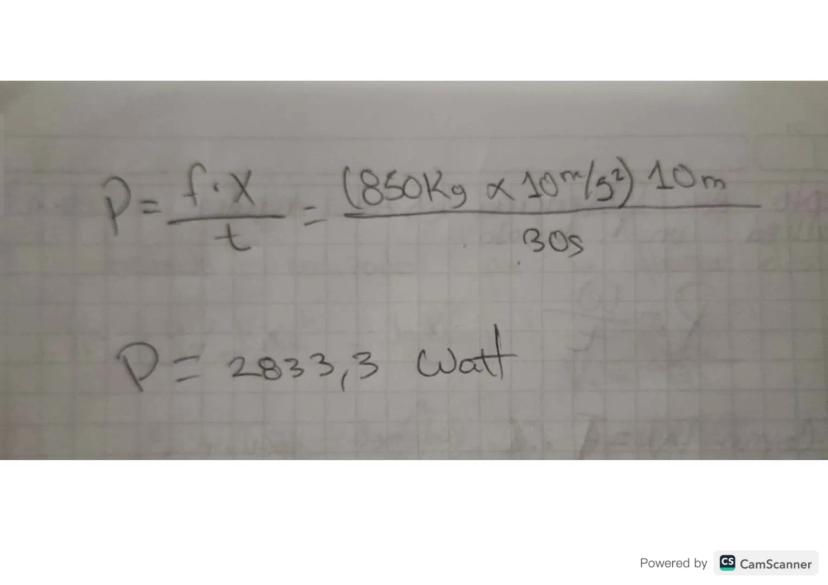 P = f·x / t = (850Kg x 10m/s²) 10m / 30s
P = 2833,3 Watt
Powered by CS CamScanner